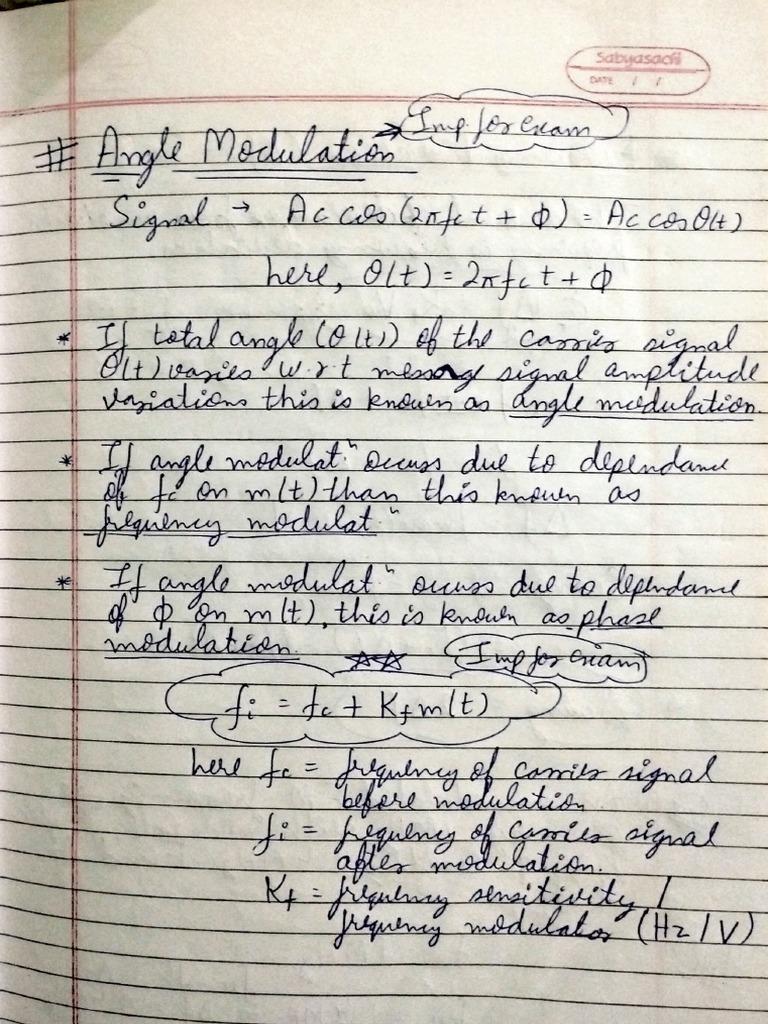 Sabyasachi
DATE / /
Imp for exam
# Angle Modulation →
Signal → Ac cos (2πfct + Φ) = Ac cos θ(t)
here, θ(t) = 2πfct + Φ
* If total angle (θ(t)) of the carrier signal
θ(t) varies w.r.t message signal amplitude
variations this is known as angle modulation.
* If angle modulat" occurs due to dependance
of fc on m(t) than this known as
frequency modulat"
* If angle modulat" occurs due to dependance
of Φ on m(t), this is known as phase
modulation.
Imp for exam
fi = fc + Kfm(t)
here fc = frequency of carrier signal
before modulation
fi = frequency of carrier signal
after modulation.
Kf = frequency sensitivity /
frequency modulator (Hz/V)